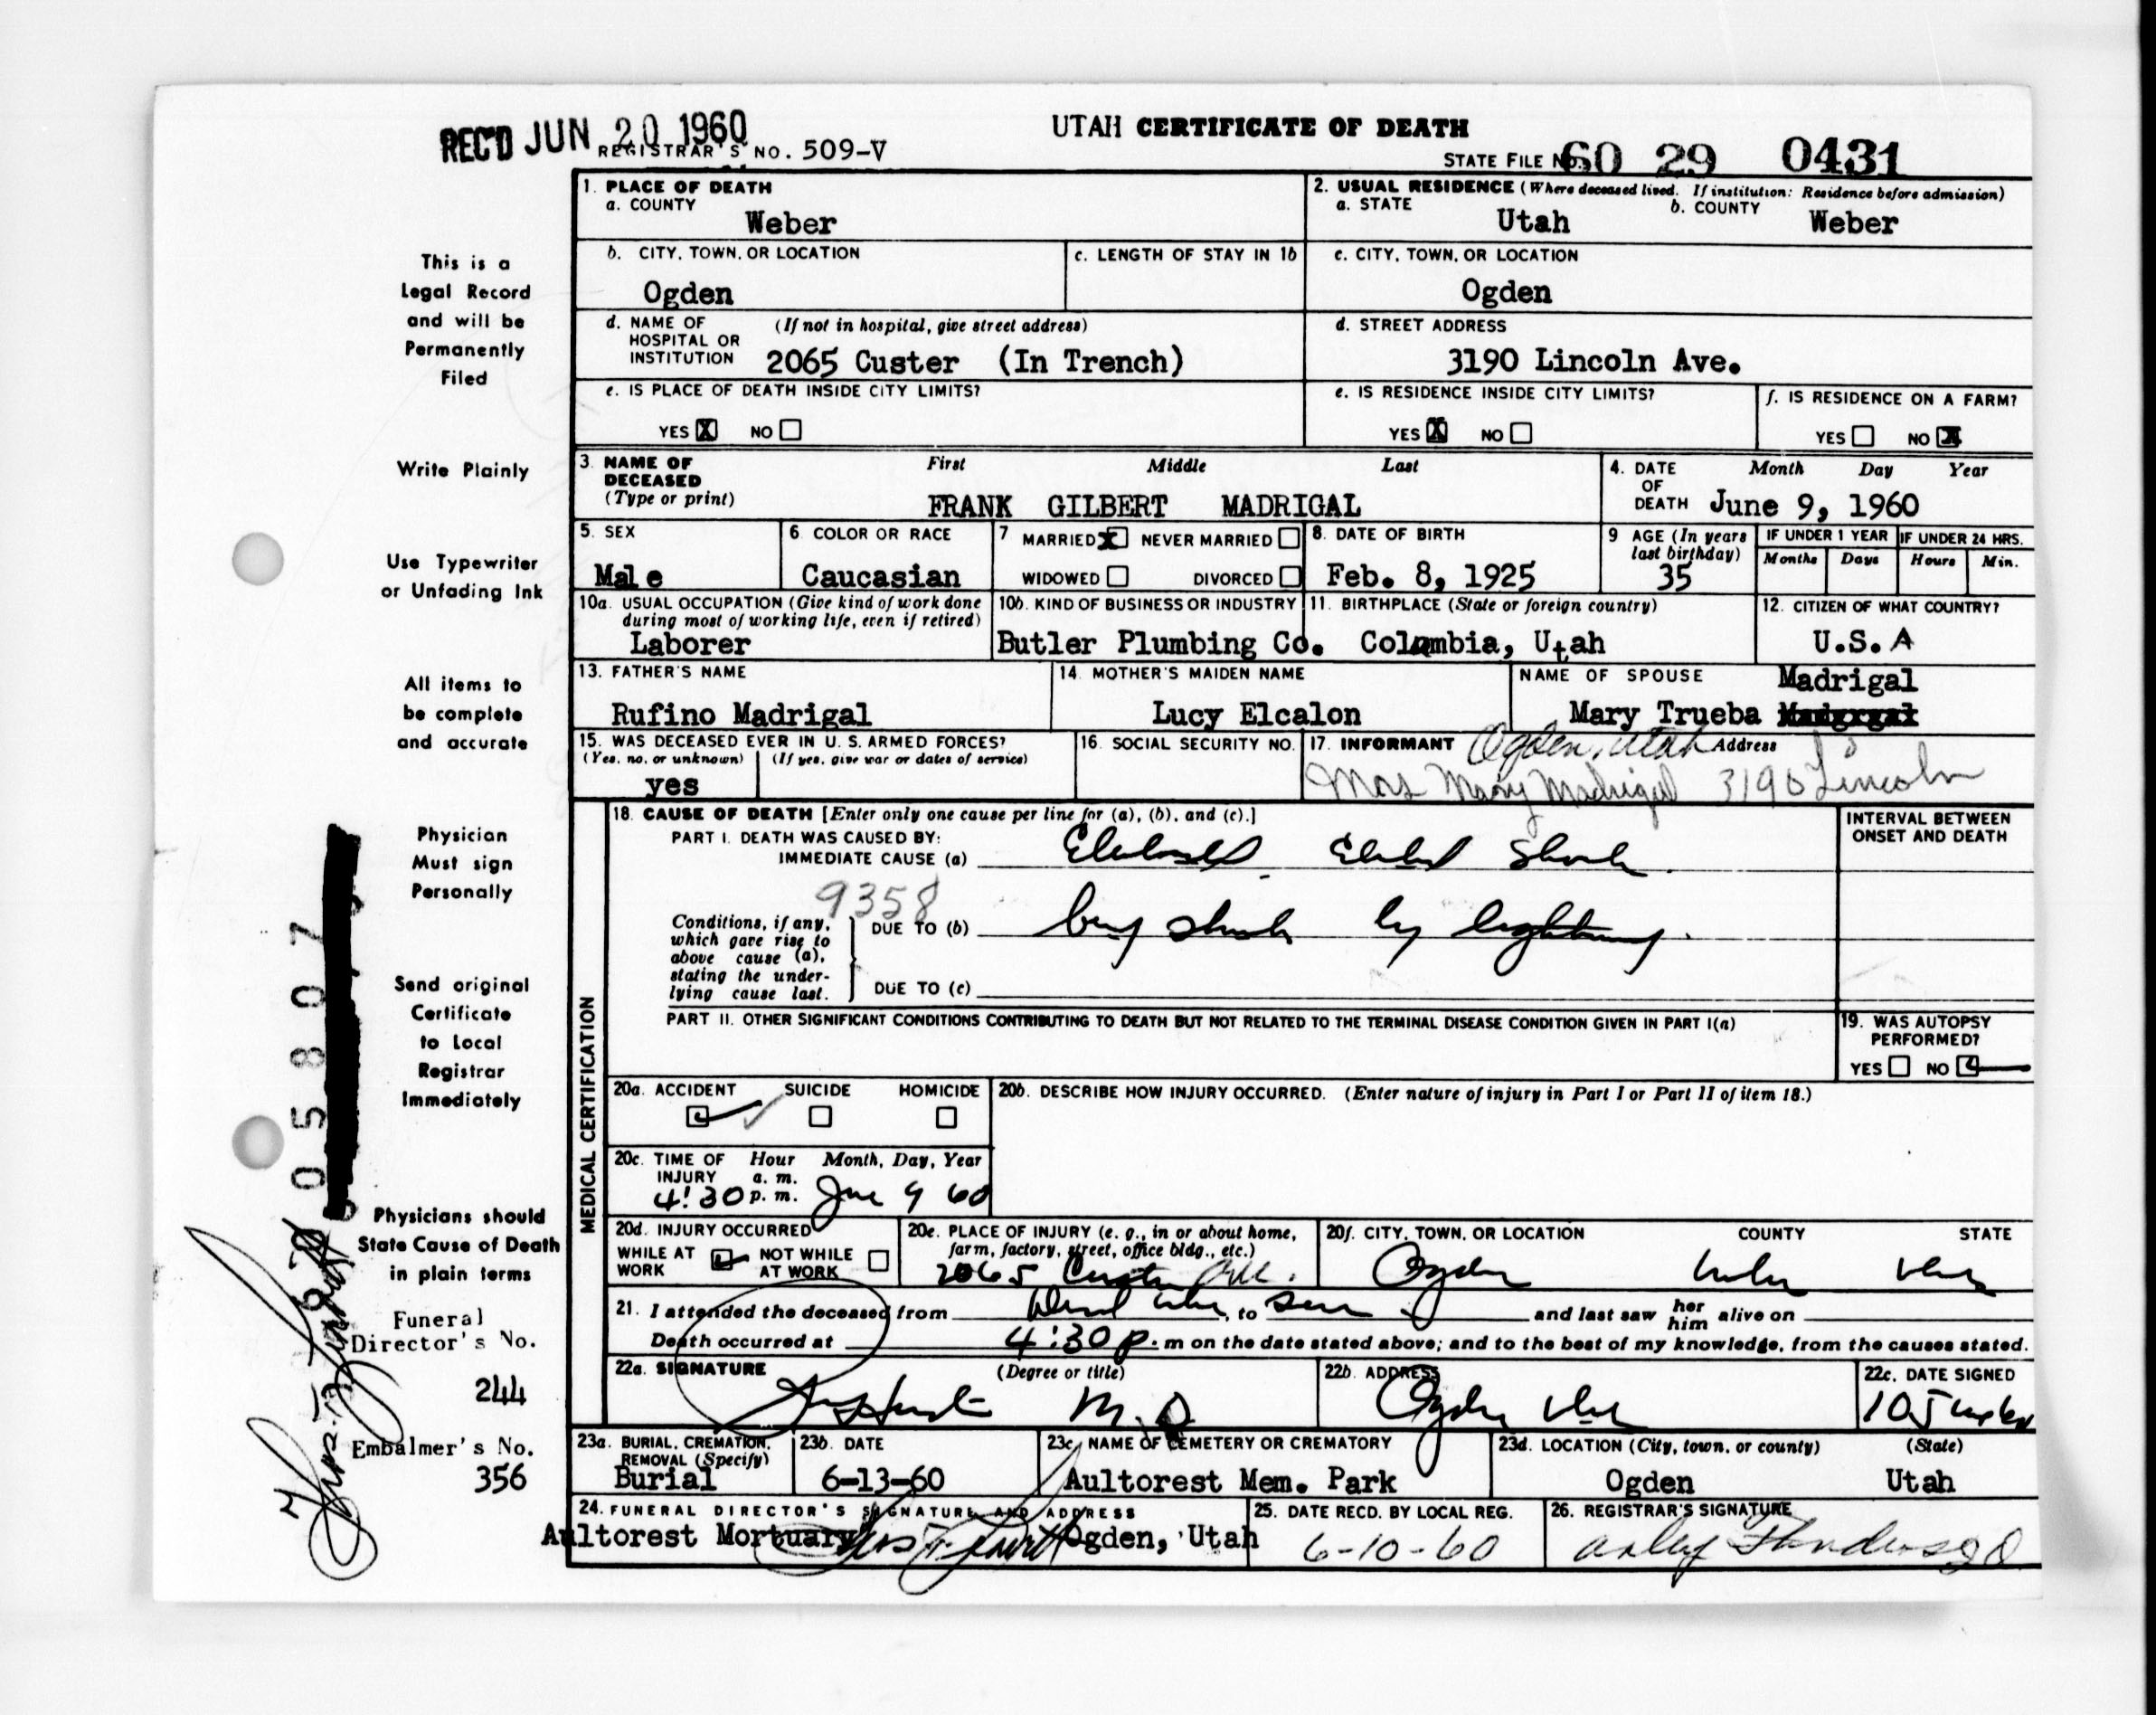 REC'D JUN 20 1960
UTAH CERTIFICATE OF DEATH
REGISTRAR'S NO. 509-V
STATE FILE NO. 60 29 0431
This is a
Legal Record
and will be
Permanently
Filed
Write Plainly
Use Typewriter
or Unfading Ink
All items to
be complete
and accurate
Physician
Must sign
Personally
Send original
Certificate
to Local
Registrar
Immediately
Physicians should
State Cause of Death
in plain terms
Funeral
Director's No.
244
Embalmer's No.
356
05807
1. PLACE OF DEATH
a. COUNTY
Weber
2. USUAL RESIDENCE (Where deceased lived. If institution: Residence before admission)
a. STATE Utah b. COUNTY Weber
b. CITY, TOWN, OR LOCATION
Ogden
c. LENGTH OF STAY IN 1b
c. CITY, TOWN, OR LOCATION
Ogden
d. NAME OF HOSPITAL OR INSTITUTION (If not in hospital, give street address)
2065 Custer (In Trench)
d. STREET ADDRESS
3190 Lincoln Ave.
e. IS PLACE OF DEATH INSIDE CITY LIMITS?
YES X NO
e. IS RESIDENCE INSIDE CITY LIMITS?
YES X NO
f. IS RESIDENCE ON A FARM?
YES NO X
3. NAME OF DECEASED (Type or print)
First Middle Last
FRANK GILBERT MADRIGAL
4. DATE OF DEATH Month Day Year
June 9, 1960
5. SEX
Male
6. COLOR OR RACE
Caucasian
7 MARRIED X NEVER MARRIED
WIDOWED DIVORCED
8. DATE OF BIRTH
Feb. 8, 1925
9 AGE (In years last birthday)
35
IF UNDER 1 YEAR IF UNDER 24 HRS.
Months Days Hours Min.
10a. USUAL OCCUPATION (Give kind of work done during most of working life, even if retired)
Laborer
10b. KIND OF BUSINESS OR INDUSTRY
Butler Plumbing Co.
11. BIRTHPLACE (State or foreign country)
Columbia, Utah
12. CITIZEN OF WHAT COUNTRY?
U.S.A
13. FATHER'S NAME
Rufino Madrigal
14. MOTHER'S MAIDEN NAME
Lucy Elcalon
NAME OF SPOUSE
Madrigal
Mary Trueba
15. WAS DECEASED EVER IN U.S. ARMED FORCES?
(Yes, no, or unknown) (If yes, give war or dates of service)
yes
16. SOCIAL SECURITY NO.
17. INFORMANT Ogden, Utah Address
Mrs Mary Madrigal 3190 Lincoln
MEDICAL CERTIFICATION
18. CAUSE OF DEATH [Enter only one cause per line for (a), (b), and (c).]
PART I. DEATH WAS CAUSED BY:
IMMEDIATE CAUSE (a) Shock
INTERVAL BETWEEN ONSET AND DEATH
9358
Conditions, if any, which gave rise to above cause (a), stating the underlying cause last.
DUE TO (b) being struck by lightning.
DUE TO (c)
PART II. OTHER SIGNIFICANT CONDITIONS CONTRIBUTING TO DEATH BUT NOT RELATED TO THE TERMINAL DISEASE CONDITION GIVEN IN PART I(a)
19. WAS AUTOPSY PERFORMED?
YES NO
20a. ACCIDENT SUICIDE HOMICIDE
20b. DESCRIBE HOW INJURY OCCURRED. (Enter nature of injury in Part I or Part II of item 18.)
20c. TIME OF INJURY Hour Month, Day, Year
a. m.
4:30 p. m. June 9 60
20d. INJURY OCCURRED
WHILE AT WORK NOT WHILE AT WORK
20e. PLACE OF INJURY (e. g., in or about home, farm, factory, street, office bldg., etc.)
2065 Custer Ave.
20f. CITY, TOWN, OR LOCATION COUNTY STATE
Ogden Weber Utah
21. I attended the deceased from Dead when, to seen and last saw her him alive on
Death occurred at 4:30 p. m on the date stated above; and to the best of my knowledge, from the causes stated.
22a. SIGNATURE (Degree or title)
M.D
22b. ADDRESS
Ogden Utah
22c. DATE SIGNED
10 June 60
23a. BURIAL, CREMATION, REMOVAL (Specify)
Burial
23b. DATE
6-13-60
23c. NAME OF CEMETERY OR CREMATORY
Aultorest Mem. Park
23d. LOCATION (City, town, or county) (State)
Ogden Utah
24. FUNERAL DIRECTOR'S SIGNATURE AND ADDRESS
Aultorest Mortuary Ogden, Utah
25. DATE RECD. BY LOCAL REG.
6-10-60
26. REGISTRAR'S SIGNATURE